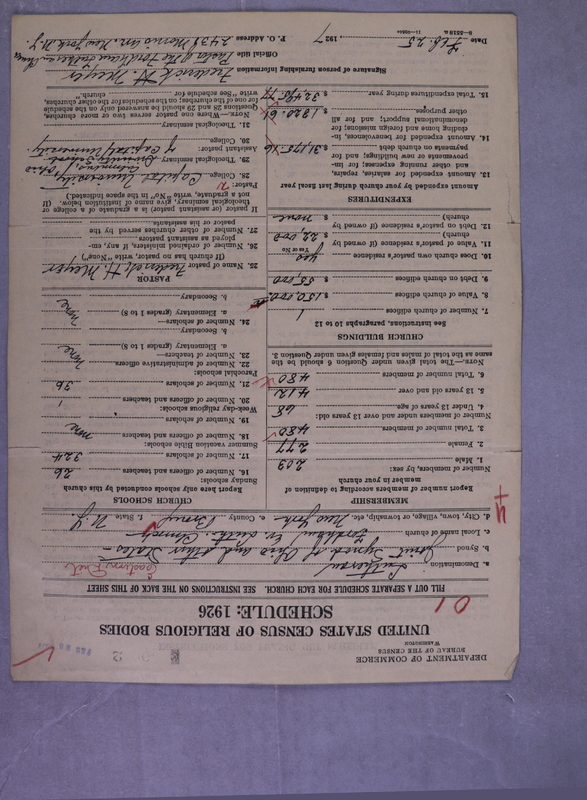 8—5318 a
DEPARTMENT OF COMMERCE
BUREAU OF THE CENSUS
WASHINGTON
UNITED STATES CENSUS OF RELIGIOUS BODIES
SCHEDULE: 1926
FILL OUT A SEPARATE SCHEDULE FOR EACH CHURCH. SEE INSTRUCTIONS ON THE BACK OF THIS SHEET
01
Eastern Dist
a. Denomination Lutheran
b. Synod Joint Synod of Ohio and other States
c. Local name of church Fordham Ev. Luth. Church
d. City, town, village, or township, etc. New York e. County Bronx f. State N.Y.
MEMBERSHIP
Report number of members according to definition of member in your church
Number of members, by sex:
1. Male 203
2. Female 277
3. Total number of members 480
Number of members under and over 13 years old:
4. Under 13 years of age 68
5. 13 years old and over 412
6. Total number of members 480
NOTE.—The total given under Question 6 should be the same as the total of males and females given under Question 3.
CHURCH BUILDINGS
See instructions, paragraphs 10 to 12
7. Number of church edifices 1
8. Value of church edifices $ 150,000
9. Debt on church edifices $ 55,000
10. Does church own pastor's residence yes
Yes or No
11. Value of pastor's residence (if owned by church) $ 22,000
12. Debt on pastor's residence (if owned by church) $ none
EXPENDITURES
Amount expended by your church during last fiscal year
13. Amount expended for salaries, repairs, and other running expenses; for improvements or new buildings; and for payments on church debt $ 31,175.16
14. Amount expended for benevolences, including home and foreign missions; for denominational support; and for all other purposes $ 1320.61
15. Total expenditures during year $ 32495.77
CHURCH SCHOOLS
Report here only schools conducted by this church
Sunday schools:
16. Number of officers and teachers 26
17. Number of scholars 324
Summer vacation Bible schools:
18. Number of officers and teachers none
19. Number of scholars
Week-day religious schools:
20. Number of officers and teachers 1
21. Number of scholars 36
Parochial schools:
22. Number of administrative officers none
23. Number of teachers—
a. Elementary (grades 1 to 8) none
b. Secondary
24. Number of scholars—
a. Elementary (grades 1 to 8) none
b. Secondary
PASTOR
25. Name of pastor Frederick H. Meyer
(If church has no pastor, write "None")
26. Number of ordained ministers, if any, employed as assistant pastors
27. Number of other churches served by the pastor or his assistants
If pastor (or assistant pastor) is a graduate of a college or theological seminary, give name of institution below. (If not a graduate, write "No" in the space indicated.)
Pastor:
28. College Capital University, Columbus, Ohio
29. Theological seminary Divinity School of Capital University
Assistant pastor:
30. College
31. Theological seminary
NOTE.—Where one pastor serves two or more churches, Questions 28 and 29 should be answered only on the schedule for one of the churches; on the schedules for the other churches, write "See schedule for church."
Signature of person furnishing information Frederick H. Meyer
Official title Pastor of the Fordham Lutheran Church
Date Feb. 25, 1927 P. O. Address 2438 Morris Ave. New York N.Y.